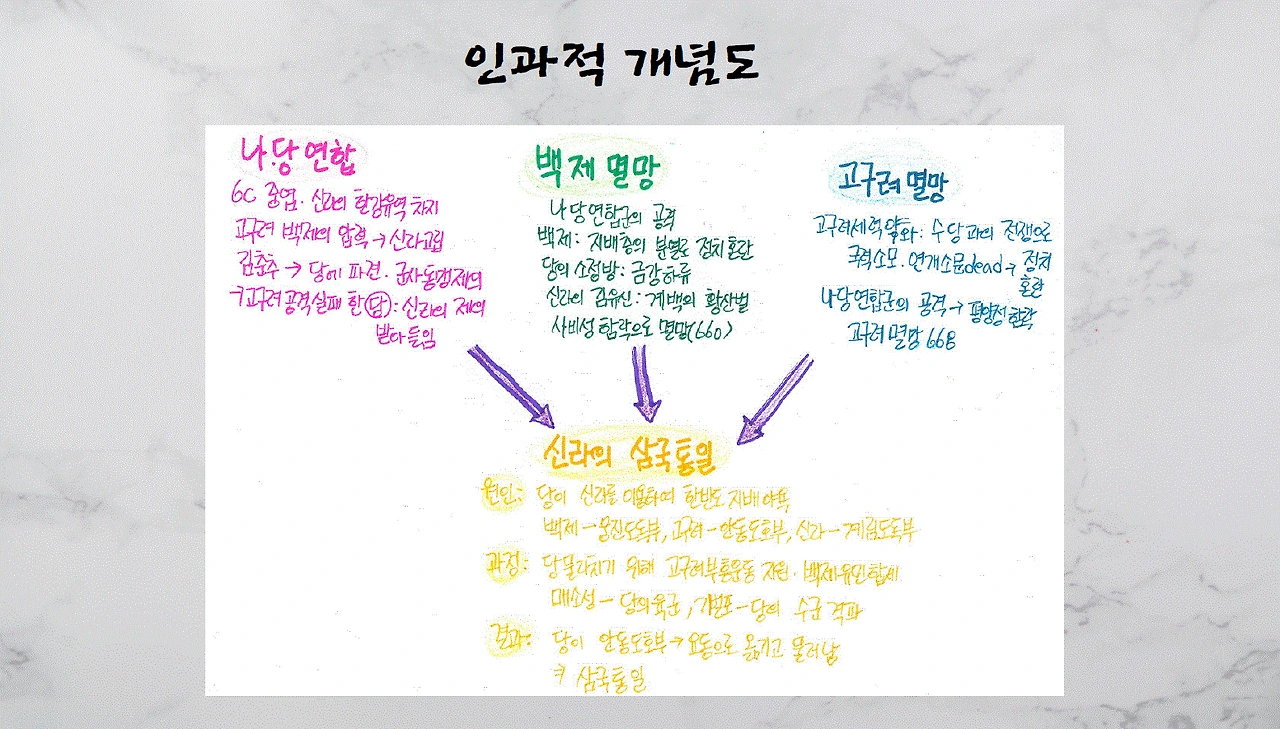 인과적 개념도
나·당 연합
6C 중엽. 신라의 한강유역 차지
고구려 백제의 압력 → 신라고립
김춘추 → 당에 파견. 군사동맹제의
고구려 공격실패 한 당: 신라의 제의
받아들임
백제 멸망
나당연합군의 공격
백제: 지배층의 분열로 정치혼란
당의 소정방: 금강하류
신라의 김유신: 계백의 황산벌
사비성 함락으로 멸망(660)
고구려 멸망
고구려세력약화: 수당과의 전쟁으로
국력소모. 연개소문dead → 정치
혼란
나당연합군의 공격 → 평양성함락
고구려 멸망 668
신라의 삼국통일
원인: 당이 신라를 이용하여 한반도 지배야욕
백제 - 웅진도독부, 고구려 - 안동도호부, 신라 - 계림도독부
과정: 당 물리치기 위해 고구려부흥운동 지원. 백제유민합세
매소성 - 당의육군, 기벌포 - 당의 수군 격파
결과: 당이 안동도호부 → 요동으로 옮기고 물러남
삼국통일